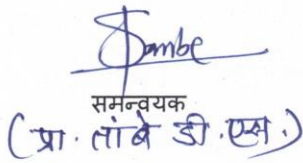 Sambe
समन्वयक
(प्रा. तांबे डी.एस.)